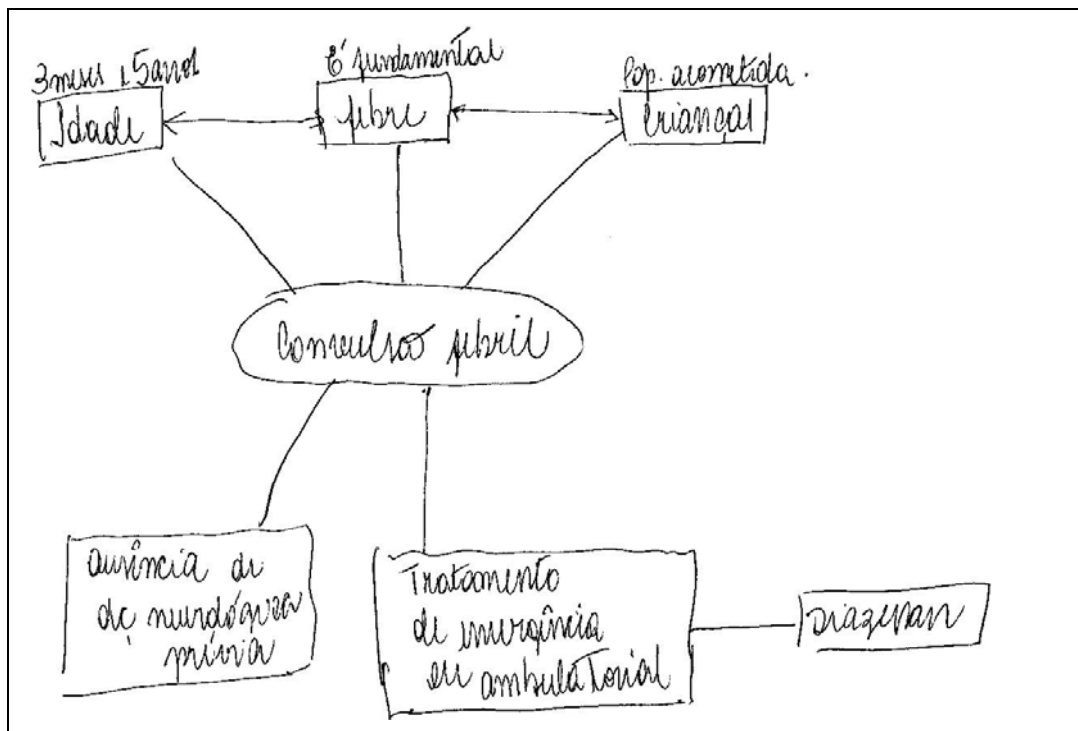 3 meses e 5 anos
Idade
É fundamental
febre
Pop. acometida.
Crianças
Convulsão febril
ausência de
dç neurológica
prévia
Tratamento
de emergência
ou ambulatorial
Diazepan